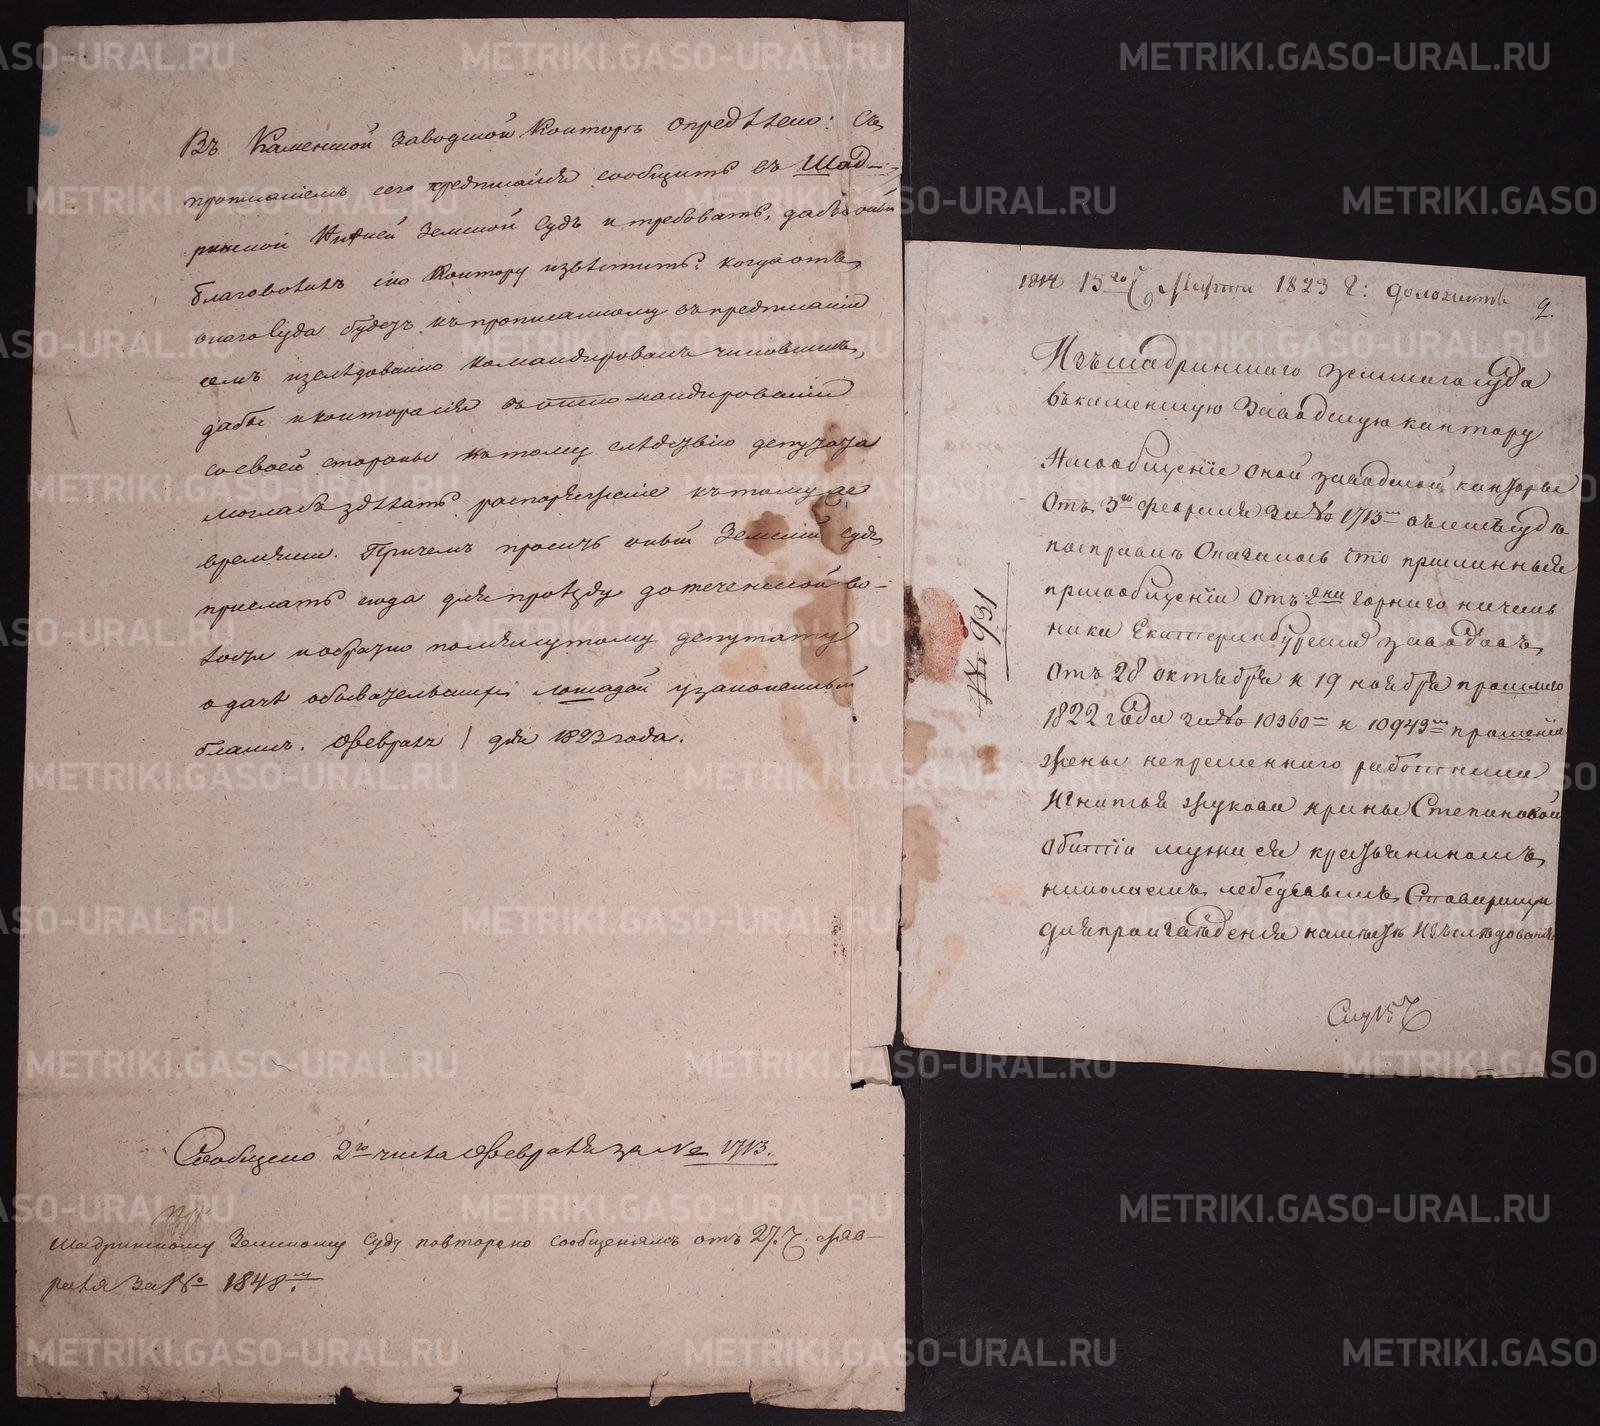 Въ Каменской Заводской Конторѣ опредѣлено: Съ
прописаніемъ сего предписанія сообщить въ Шад-
ринской Нижней Земской Судъ и требовать, дабы оный
благоволилъ сію Контору извѣстить: когда отъ
онаго Суда будетъ къ прописанному въ предписаніи
семъ изслѣдованію командированъ чиновникъ,
дабы и контора сія въ откомандированіи
со своей стороны къ тому слѣдствію депутата
могла бъ здѣлать распоряженіе къ тому же
времяни. Причемъ просить оный Земский Судъ
прислать сюда для проѣзду до теченской во-
лости и обратно помянутому депутату
о дачѣ обывательскихъ лошадей узаконенный
бланкъ. Февраля 1 дня 1823 года.
Сообщено 2го числа февраля за № 1713.
Шадринскому Земскому Суду повторено сообщеніемъ отъ 27. Ч. фев-
раля за № 1848мъ.
15го Ч. Марта 1823 г: доложить
2.
Изъ шадринскаго земскаго суда
въ каменскую заводскую кантору
На сообщеніе оной заводской канторы
отъ 3го февраля за № 1713мъ въ семъ судѣ
по справкѣ оказалось что присланныя
при сообщеніи отъ горнаго началь
ника Екатеринбурскихъ заводовъ
отъ 28 октября и 19 ноября прошлаго
1822 года за № 10360мъ и 10943мъ прошеніи
жены непременнаго работника
Игнатья жукова ирины Степановой
обитіи мужа ея крестьяниномъ
николаемъ лебедевымъ с товарищи
для произведенія на местѣ изъследованія
№ 931